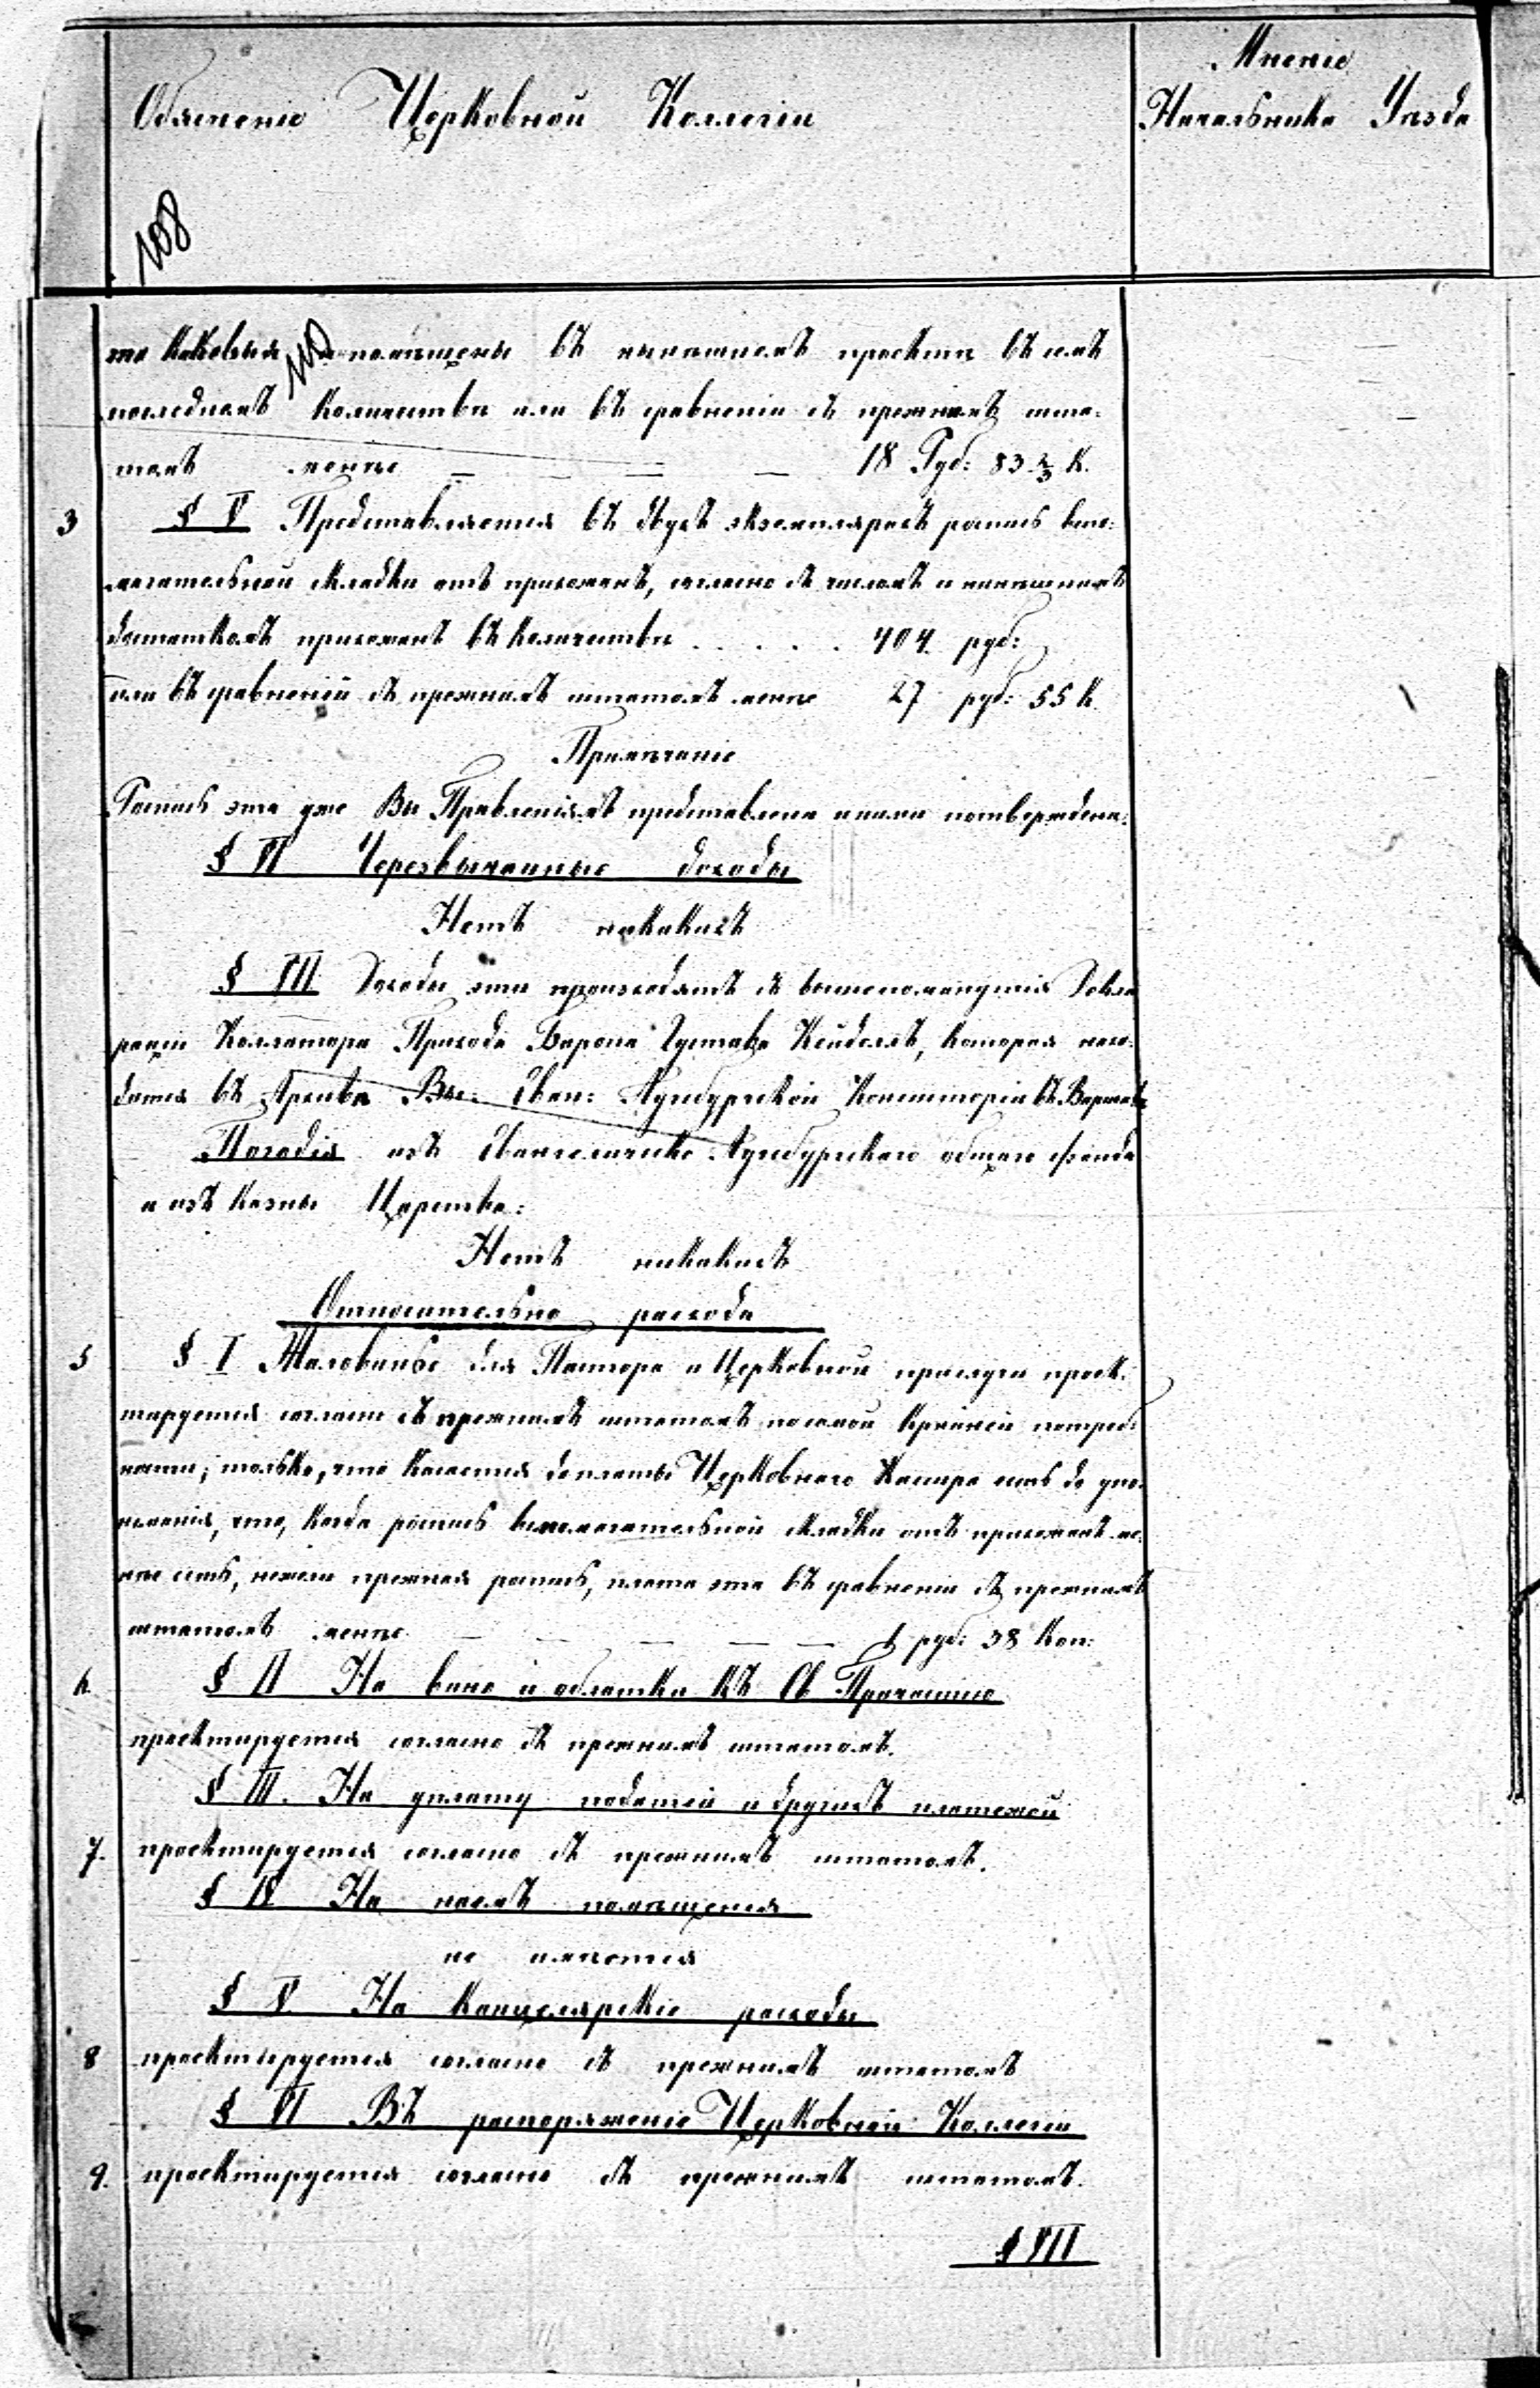 Мненіе
Обясненіе Церковной Коллегіи
Начальника Уезда
108
110
то таковыя и помѣщены въ нынѣшнемъ проектѣ въ семъ
последнемъ количествѣ или въ сравненіи съ прежнимъ шта-
томъ менѣе — — — 18 Руб: 83 2/3 К.
3 § V Представляется въ двухъ экземплярахъ роспись вспо-
могательной складки отъ прихожанъ, согласно съ числомъ и нынѣшнимъ
достаткомъ прихожанъ въ количествѣ . . . . . 404 руб:
или въ сравненіи съ прежнимъ штатомъ менѣе 27 руб: 55 К.
Примѣчаніе
Роспись эта уже Вы. Правленіямъ представлена и ими потверждена.
§ VI Черезвычайные доходы
Нетъ никакихъ
§ VII Доходы эти происходятъ съ вышепомянутія Декла
раціи Коллятора Прихода Барона Густава Кейдель, которая нахо-
дится въ Архивѣ Вы: Еван: Аугсбургской Консисторіи въ Варшавѣ
Пособія изъ Евангелическо Аугсбургскаго общаго фонда
и изъ казны Царства:
Нетъ никакихъ
Относительно расхода
5 § I Жалованье для Пастора и Церковной прислуги проек-
тируется согласно съ прежнимъ штатомъ по самой крайней потреб-
ности; только, что касается доплаты Церковнаго Кассира есть до упо-
мненія, что, когда роспись вспомогательной складки отъ прихожанъ ме-
нѣе есть, нежели прежняя роспись, плата эта въ сравненіи съ прежнимъ
штатомъ менѣе — — — — — 1 руб: 38 Коп:
6. § II На вино и облатки къ Св Причастію
проектируется согласно съ прежнимъ штатомъ.
§ III. На уплату податей и другихъ платежей
7. проектируется согласно съ прежнимъ штатомъ.
§ IV На наемъ помѣщенія
не имѣется
§ V На канцелярскіе расходы
8 проектируется согласно съ прежнимъ штатомъ
§ VI Въ распоряженіе Церковной Коллегіи
9. проектируется согласно съ прежнимъ штатомъ.
§ VII